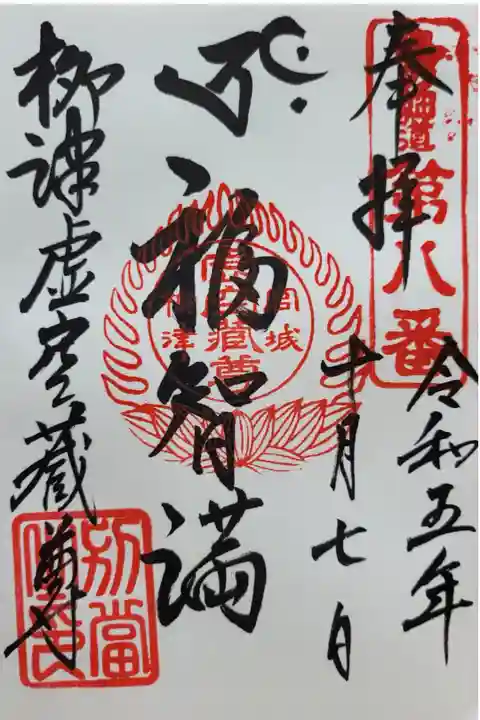 奉拝
第八番
令和五年
十月七日
福智満
虚空蔵尊
宮城
津
柳津虚空蔵尊
別當